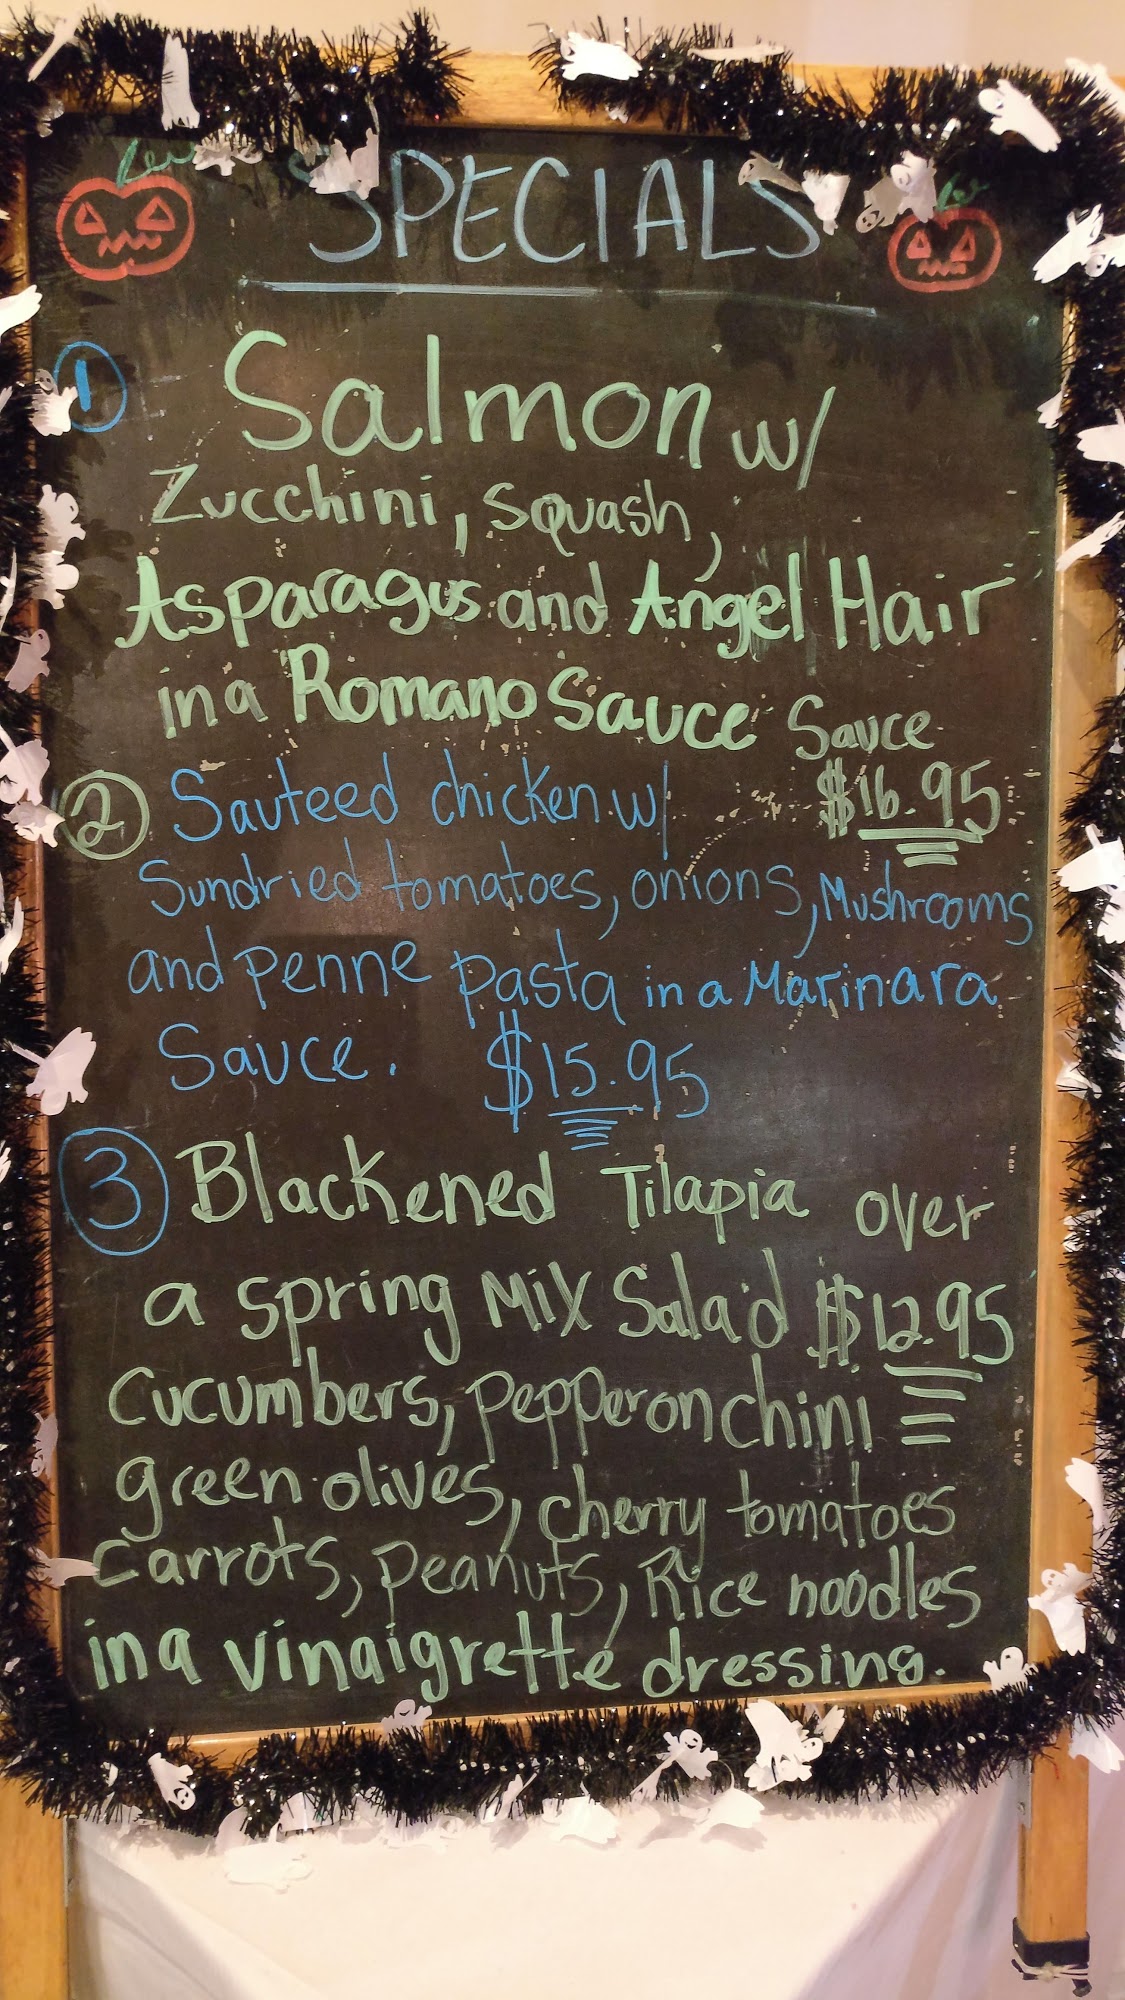 SPECIALS
1 Salmon w/
Zucchini, squash,
Asparagus and Angel Hair
in a Romano Sauce Sauce
$16.95
2 Sauteed chicken w/
Sundried tomatoes, onions, Mushrooms
and penne pasta in a Marinara
Sauce. $15.95
3 Blackened Tilapia over
a spring Mix Salad $12.95
cucumbers, pepperonchini
green olives, cherry tomatoes
carrots, peanuts, Rice noodles
in a vinaigrette dressing.